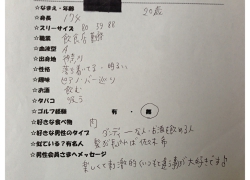 ☆なまえ・年齢 20歳
☆身長 174
☆スリーサイズ 80 59 88
☆職業 飲食店勤務
☆血液型 A
☆出身地 神奈川
☆性格 落ち着いてる・明るい
☆趣味 ピアノ・バー巡り
☆お酒 飲む
☆タバコ 吸う
☆ゴルフ経験 有・無
☆好きな食べ物 肉
☆好きな男性のタイプ ダンディーな人・お酒を飲める人
☆似ている？有名人 髪が長ければ佐々木希
☆男性会員さまへメッセージ
楽しくて刺激的
大好きです